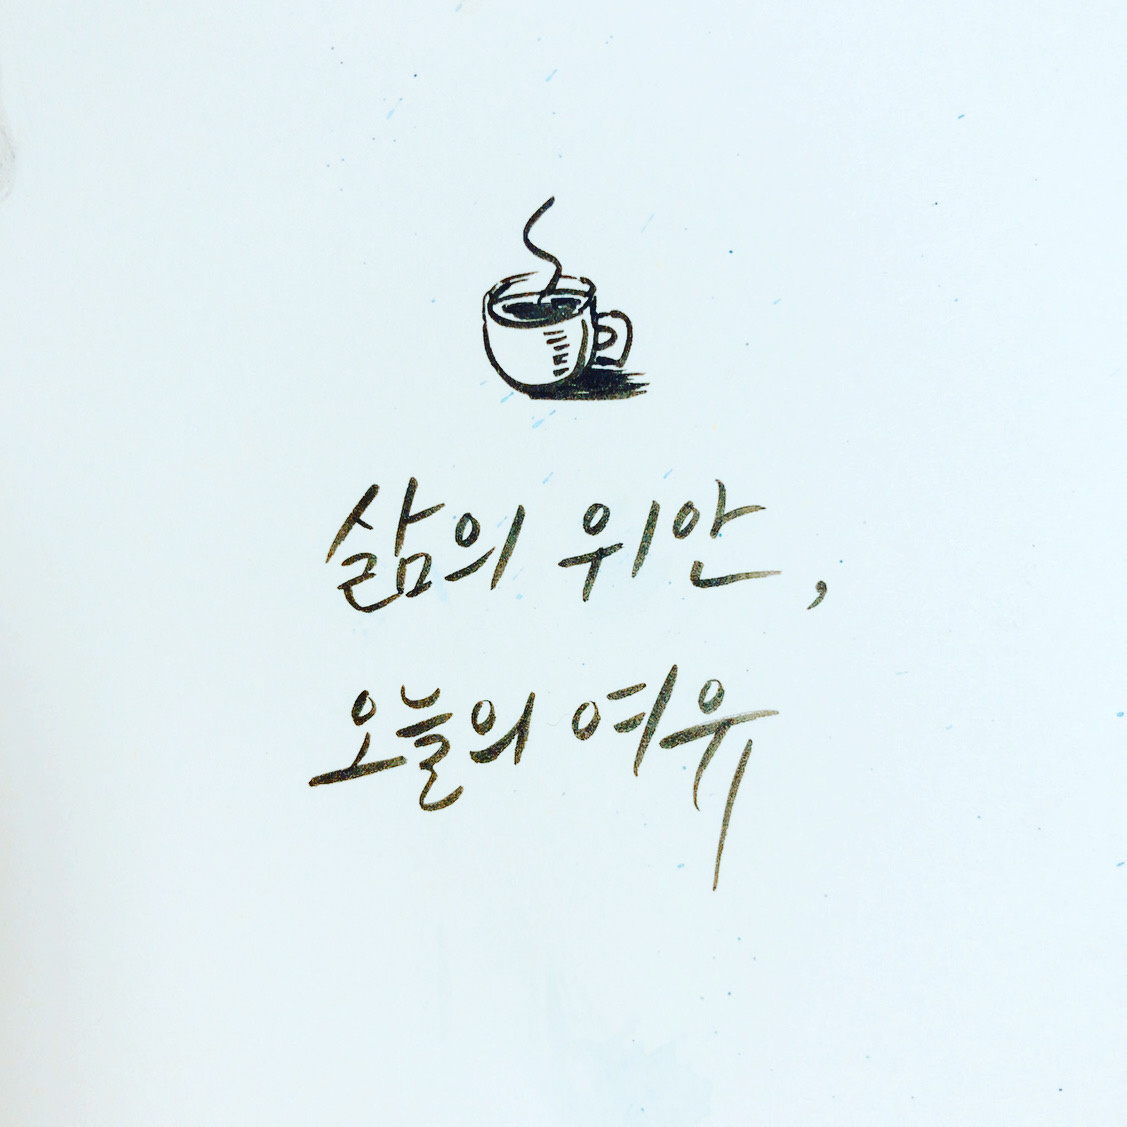 삶의 위안,
오늘의 여유